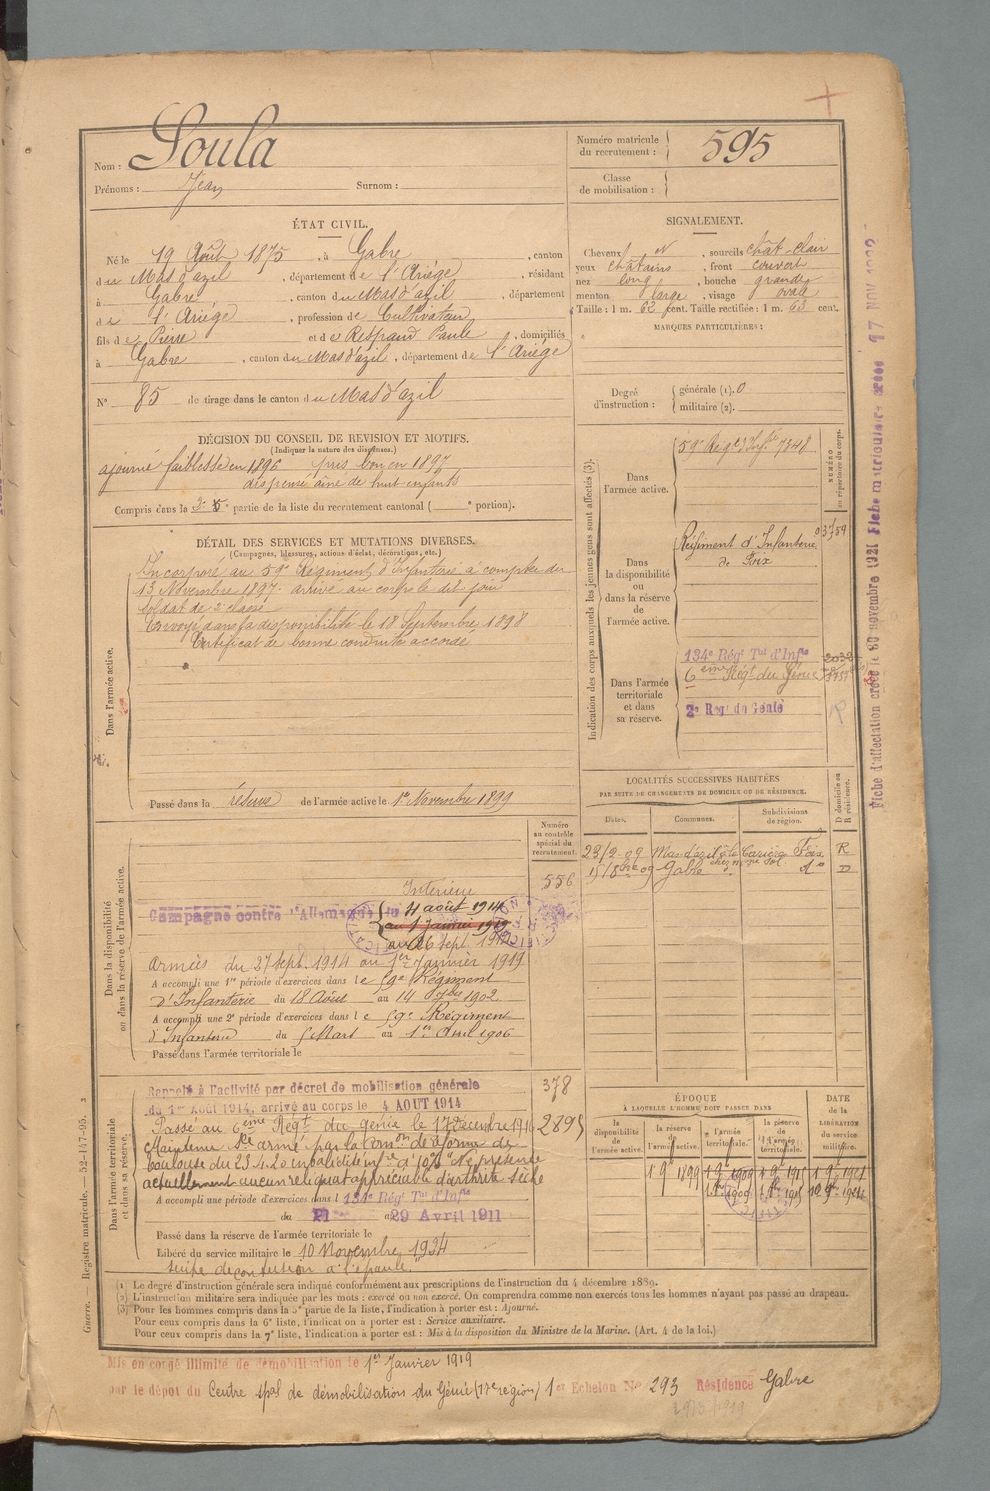 Nom : Soula
Prénoms : Jean Surnom :
Numéro matricule du recrutement : 595
Classe de mobilisation :
ÉTAT CIVIL.
Né le 19 Août 1875, à Gabre, canton
du Mas d'azil, département de l'Ariége, résidant
à Gabre, canton du Mas d'azil, département
de l'Ariége, profession de Cultivateur,
fils de Pierre et de Respaud Paule, domiciliés
à Gabre, canton du Mas d'azil, département de l'Ariége
N° 85 de tirage dans le canton du Mas d'azil
SIGNALEMENT.
Cheveux N, sourcils chât-clair
yeux châtains, front couvert
nez long, bouche grande
menton large, visage oval
Taille : 1 m. 62 cent. Taille rectifiée : 1 m. 63 cent.
MARQUES PARTICULIÈRES :
Degré d'instruction : générale (1). 0
militaire (2).
DÉCISION DU CONSEIL DE REVISION ET MOTIFS.
(Indiquer la nature des dispenses.)
ajourné faiblesse en 1896 pris bon en 1897
dispensé aîné de huit enfants
Compris dans la 5e partie de la liste du recrutement cantonal ( e portion).
DÉTAIL DES SERVICES ET MUTATIONS DIVERSES.
(Campagnes, blessures, actions d'éclat, décorations, etc.)
Dans l'armée active.
Incorporé au 59e Régiment d'Infanterie à compter du
13 Novembre 1897. arrivé au corps le dit jour
Soldat de 2e classe
Envoyé dans la disponibilité le 18 Septembre 1898
Certificat de bonne conduite accordé
Passé dans la réserve de l'armée active le 1er Novembre 1899
Indication des corps auxquels les jeunes gens sont affectés (3).
NUMÉRO au répertoire du corps.
Dans l'armée active.
59e Régt d'Inf.ie 7348
Dans la disponibilité ou dans la réserve de l'armée active.
Régiment d'Infanterie
de Foix
Dans l'armée territoriale et dans sa réserve.
134e Régt Tal d'Infie
6ème Régt du Génie
2e Regt du Génie
LOCALITÉS SUCCESSIVES HABITÉES
PAR SUITE DE CHANGEMENTS DE DOMICILE OU DE RÉSIDENCE.
Dates. Communes. Subdivisions de région. D domicile ou R résidence.
23/2-09 Mas d'azil Foix R
Gabre do D
Dans la disponibilité ou dans la réserve de l'armée active.
Numéro au contrôle spécial du recrutement.
556
Intérieur
Campagne contre l'Allemagne du 4 août 1914
au 1 Janvier 1919
au 26 Sept. 1914
Armées du 27 Sept. 1914 au 1er Janvier 1919
A accompli une 1re période d'exercices dans le 59e Régiment
d'Infanterie du 18 Août au 14 7bre 1902.
A accompli une 2e période d'exercices dans le 59e Régiment
d'Infanterie du 5 Mars au 1er Avril 1906
Passé dans l'armée territoriale le
Dans l'armée territoriale et dans sa réserve.
Rappelé à l'activité par décret de mobilisation générale 378
du 1er Août 1914, arrivé au corps le 4 AOUT 1914
Passé au 6ème Régt du génie le 17 Décembre 1916 2895
Maintenu Sce armé par la Comon de réforme de
Toulouse du 23.4.20 invalidité infre à 10% "Ne présente
actuellement aucun reliquat appréciable d'arthrite sèche
A accompli une période d'exercices dans l 134e Régt Tal d'Infie
du 21 au 29 Avril 1911
Passé dans la réserve de l'armée territoriale le
Libéré du service militaire le 10 Novembre 1924
suite de contusion à l'épaule."
ÉPOQUE
À LAQUELLE L'HOMME DOIT PASSER DANS
DATE de la LIBÉRATION du service militaire.
la disponibilité de l'armée active. la réserve de l'armée active. l'armée territoriale. la réserve de l'armée territoriale.
1 9e 1899 1 9e 1909 1 9e 1915 1 9e 1921
(1) Le degré d'instruction générale sera indiqué conformément aux prescriptions de l'instruction du 4 décembre 1889.
(2) L'instruction militaire sera indiquée par les mots : exercé ou non exercé. On comprendra comme non exercés tous les hommes n'ayant pas passé au drapeau.
(3) Pour les hommes compris dans la 5e partie de la liste, l'indication à porter est : Ajourné.
Pour ceux compris dans la 6e liste, l'indication à porter est : Service auxiliaire.
Pour ceux compris dans la 7e liste, l'indication à porter est : Mis à la disposition du Ministre de la Marine. (Art. 4 de la loi.)
Mis en congé illimité de démobilisation le 1er Janvier 1919
par le dépôt du Centre spal de démobilisation du Génie (17e région) 1er Echelon No 293 Résidence Gabre
Guerre. — Registre matricule. — 52-147-95. 2